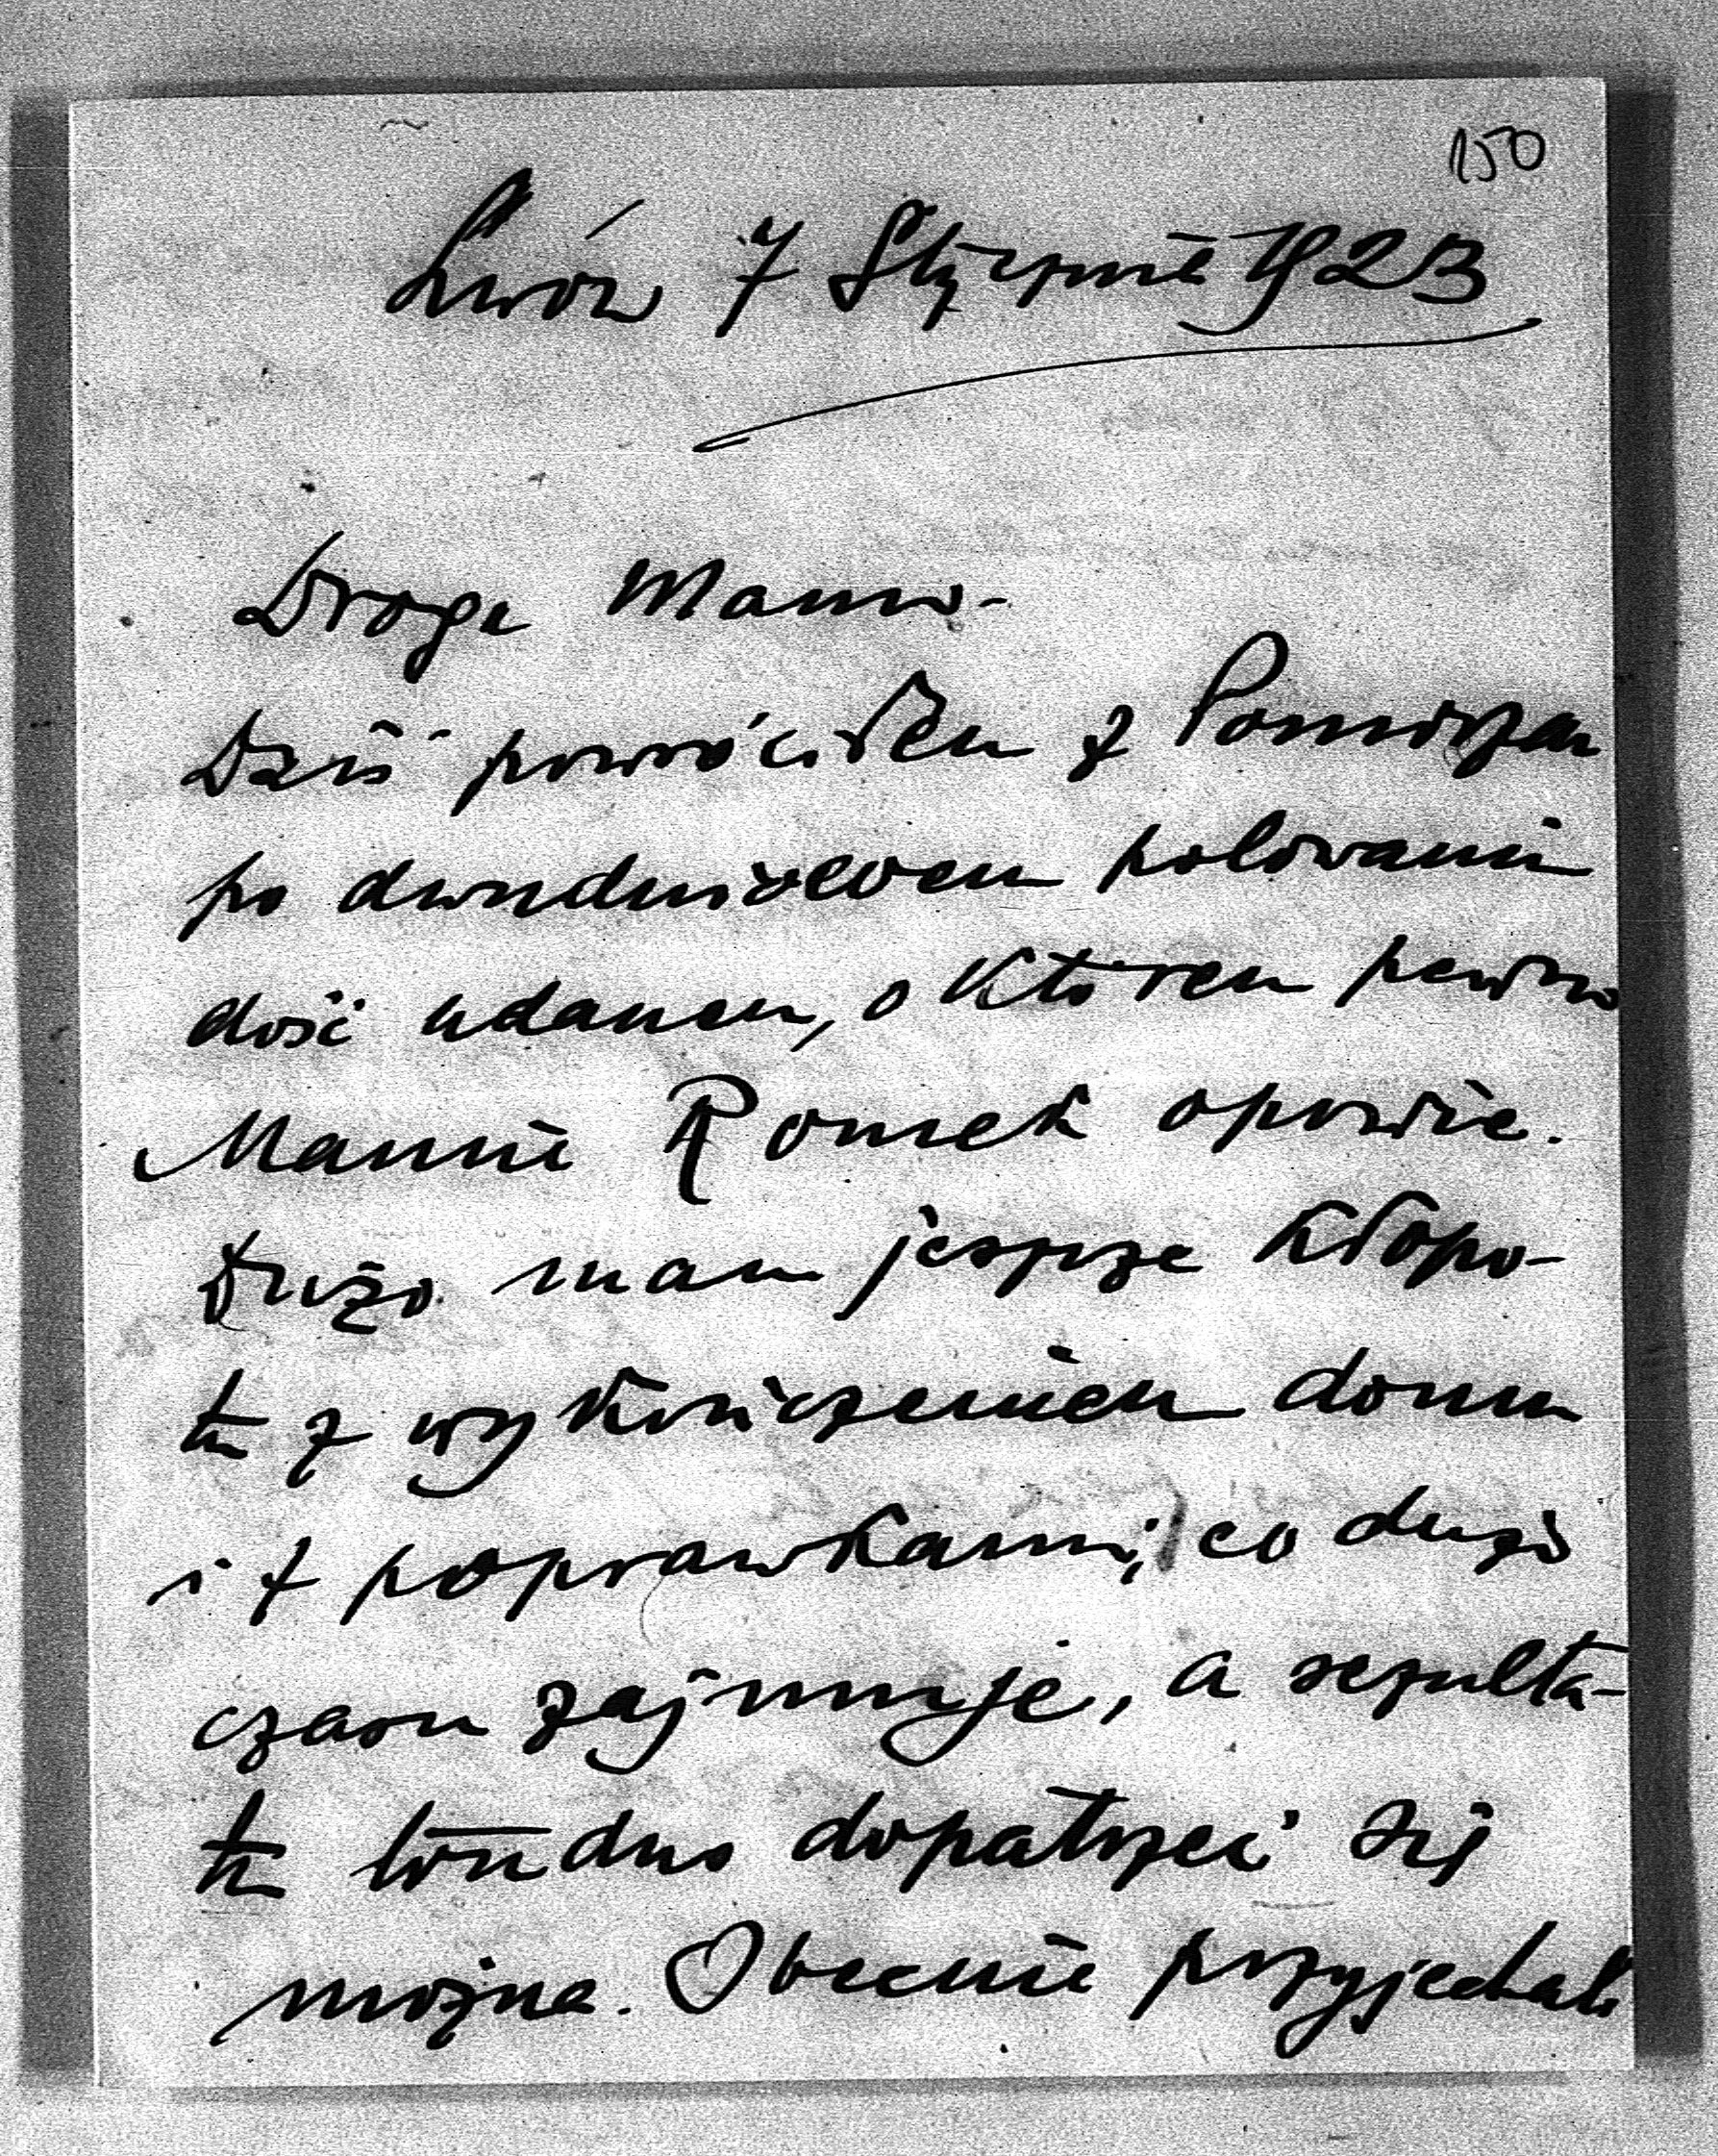 150
Lwów 7 Stycznia 1923
Droga Mamo-
Dziś powróciłem z Pomorzan
po dwudniowem polowaniu
dość udanem, o którem pewno
Mamie Romek opowie.
Dużo mam jeszcze kłopo-
tu z wykończeniem domu
i z poprawkami, co dużo
czasu zajmuje, a rezulta-
tu trudno dopatrzeć się
można. Obecnie przyjechali